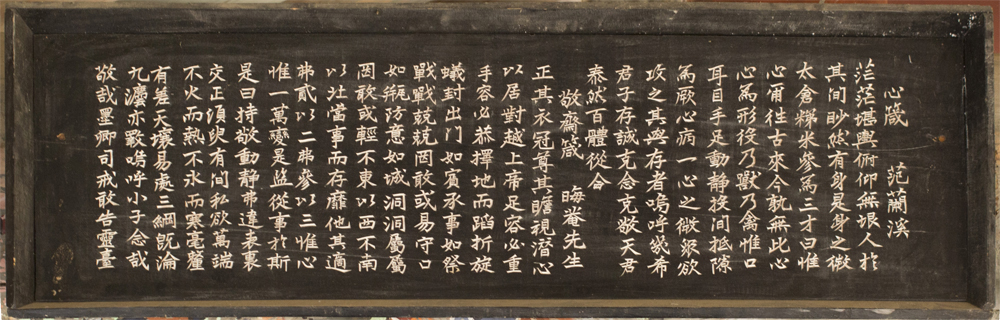 心箴 范蘭溪
茫茫堪輿俯仰無垠人於
其間眇然有身是身之微
太倉稊米參爲三才曰惟
心爾往古來今孰無此心
心爲形役乃獸乃禽惟口
耳目手足動靜投間抵隙
爲厥心病一心之微衆欲
攻之其與存者嗚呼幾希
君子存誠克念克敬天君
泰然百體從令
敬齋箴 晦菴先生
正其衣冠尊其瞻視潛心
以居對越上帝足容必重
手容必恭擇地而蹈折旋
蟻封出門如賓承事如祭
戰戰兢兢罔敢或易守口
如瓶防意如城洞洞屬屬
罔敢或輕不東以西不南
以北當事而存靡他其適
弗貳以二弗參以三惟心
惟一萬變是監從事於斯
是曰持敬動靜弗違表裏
交正須臾有間私欲萬端
不火而熱不氷而寒毫釐
有差天壤易處三綱旣淪
九灋亦斁嗚呼小子念哉
敬哉墨卿司戒敢告靈臺